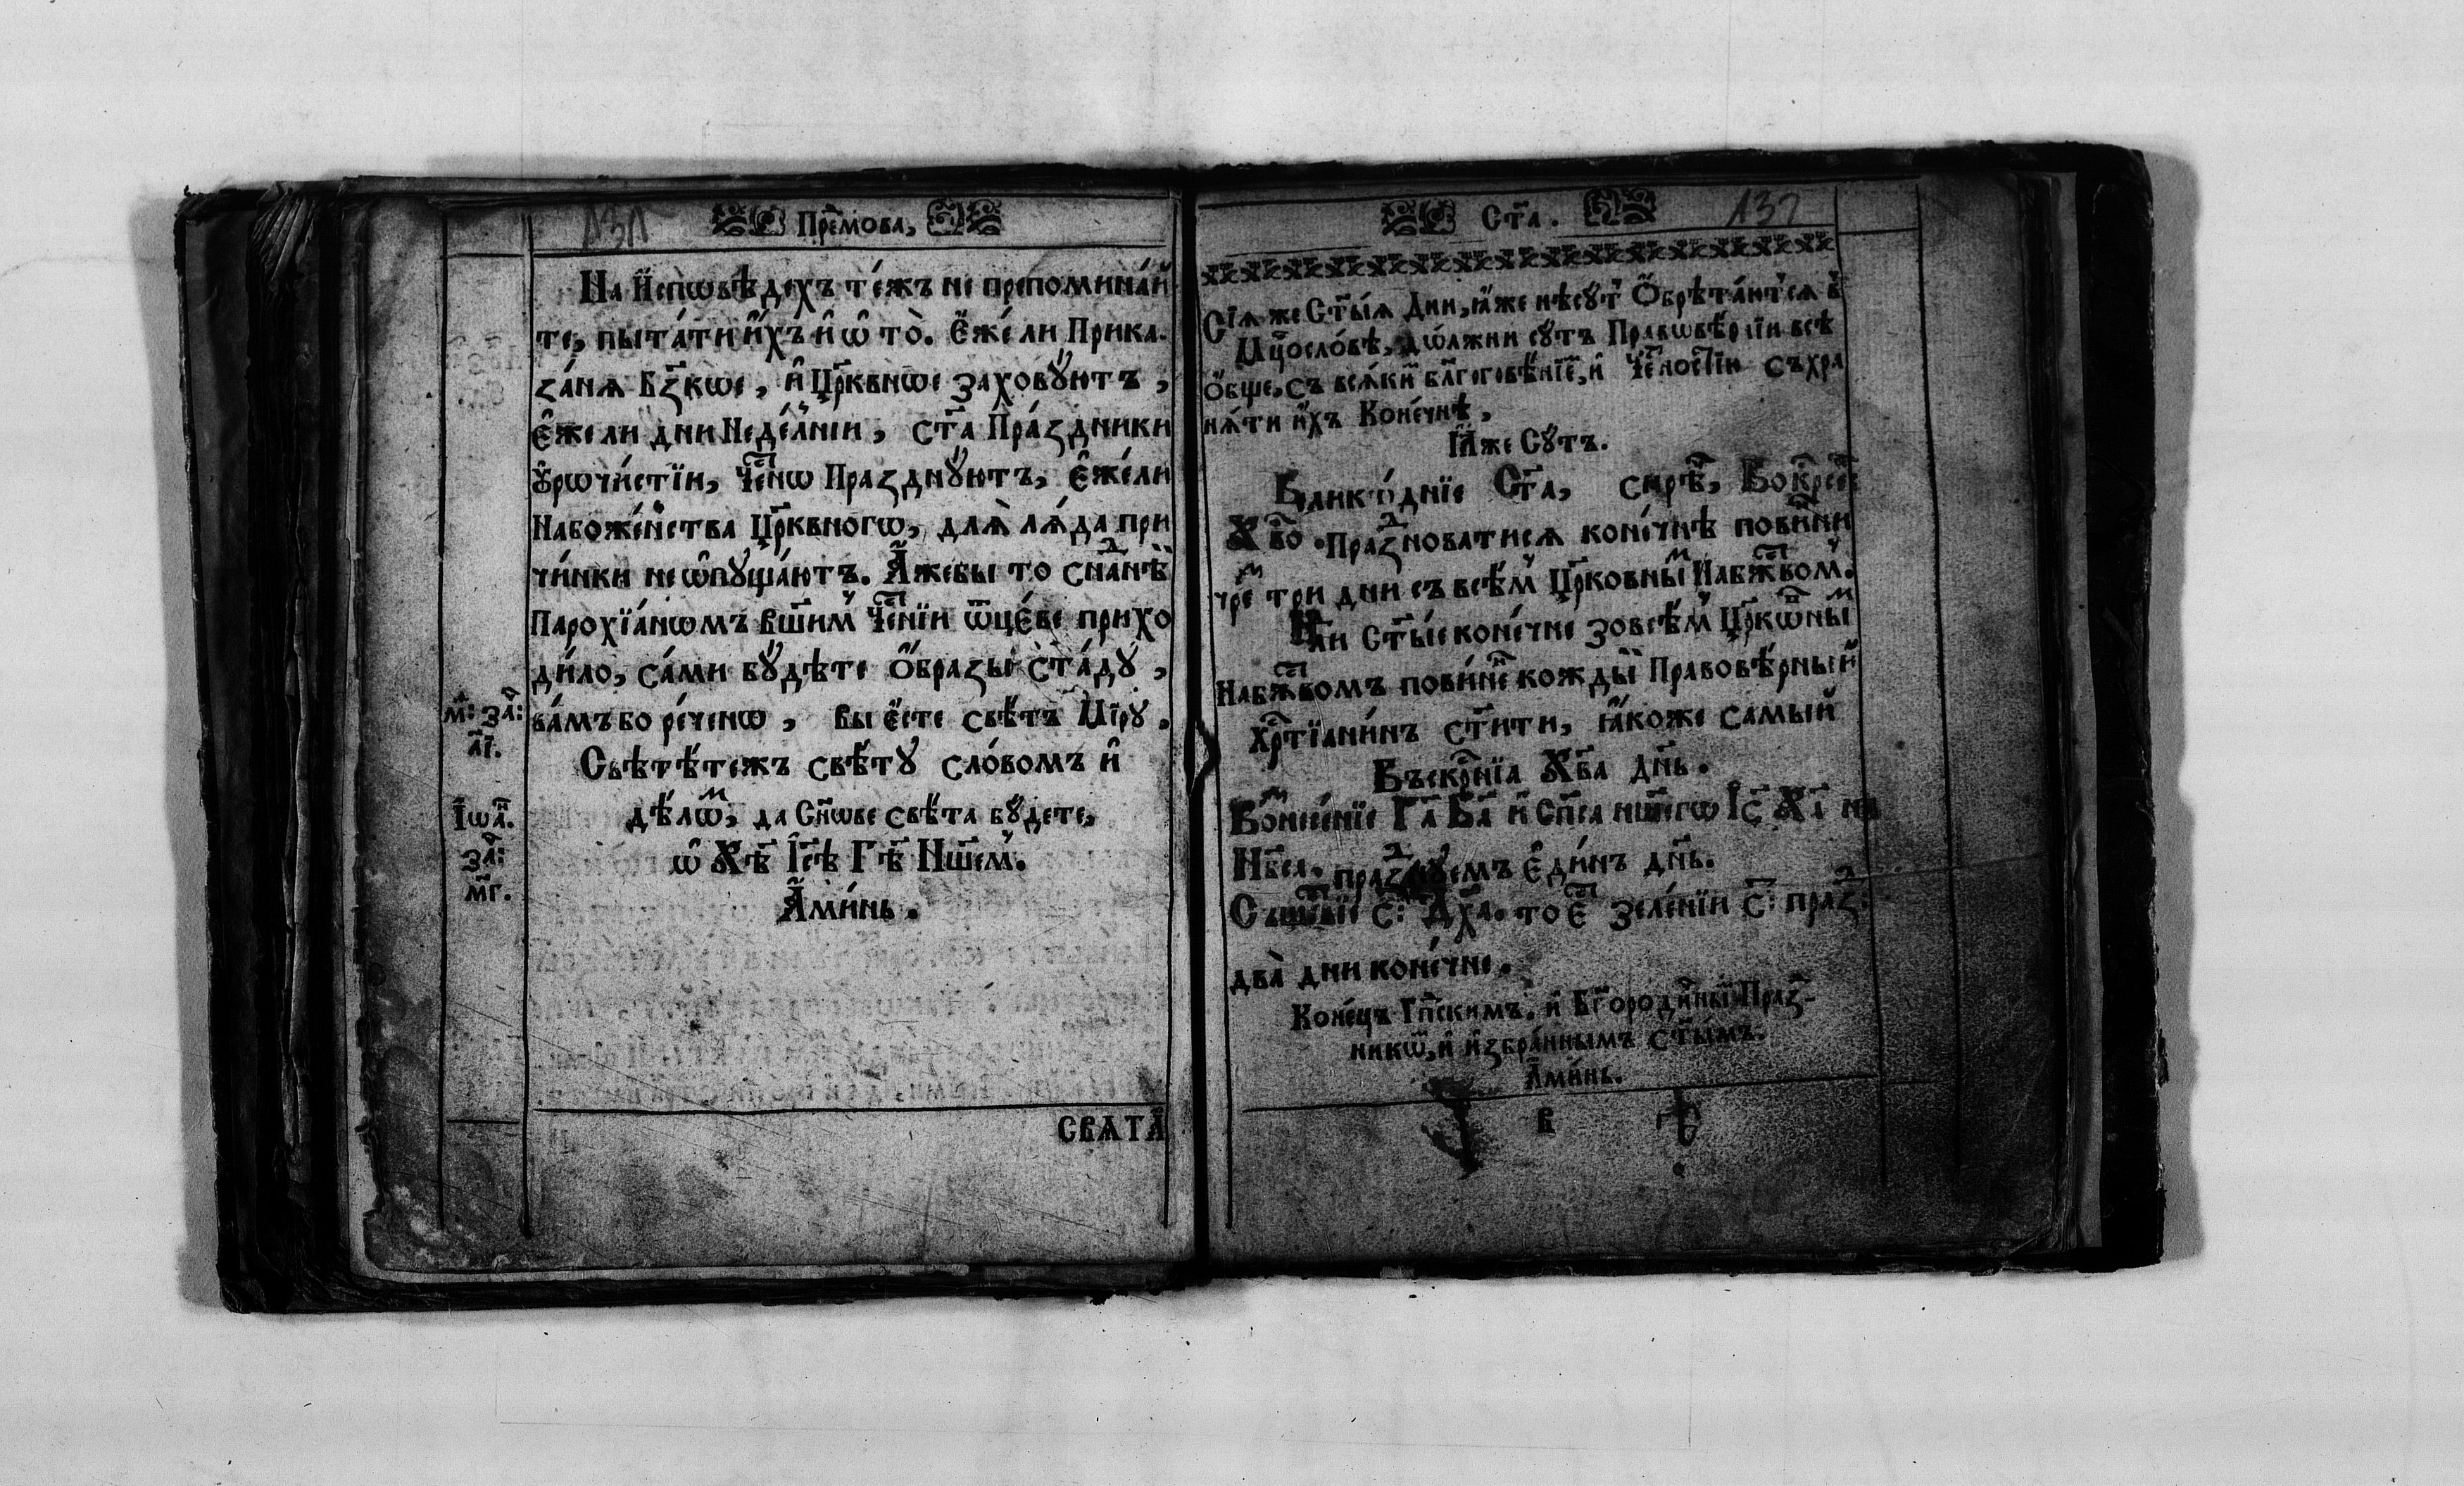 131
Прⷣемова,
На И҆сповѣдехъ те́жъ не препомина́й
те, пыта́ти и҆́хъ и҆ ѡ҆ то̀. Е҆же́ли Прика-
за́нѧ Бз҃кое, и҆ Цр҃квное заховꙋ́ютъ,
Е҆жели дни Неде́лніи, ст҃а Пра́здники
ᲂу҆рочи́стїи, Че́стнѡ Празднꙋ́ютъ, Е҆же́ли
Набоже́нства Цр҃квногѡ, длѧ̀ лѧ́да при
чи́нки не ѡ҆пꙋща́ютъ. А҆́жебы то снадне́й
Парохїа́нѡмъ вш҃имъ Че́стнїи ѿце́ве прихо
ди́ло, са́ми бꙋ́дѣте О҆́бразы ста́дꙋ,
ва́мъ бо ре́ченѡ, вы є҆́сте свѣ́тъ Мїрꙋ.
Свѣтѣ́тежъ свѣ́тꙋ сло́вомъ и҆
дѣ́лѡⷨ, да Сн҃ове свѣ́та бꙋ́дете,
ѡ҆ Хѣ҃ І҆с҃ѣ Гѣ҃ Нш҃емъ.
А҆ми́нь.
м҃: за҃:
а҃і.
І҆ѡа҃н.
за҃:
м҃г.
СВѦТА҃
Ст҃а. 132
Сїѧ же Ст҃ы́ѧ Дни, ꙗ҆́же нѣсꙋ́тъ Ѻ҆брѣта́ютсѧ в̾
Мцⷭ҇осло́вѣ, дѡ́лжни сꙋть Правѡвѣ́рнїи всѣ
ѻ҆́бще, съ всѧ́киⷨ бл҃гоговѣ́нїеⷨ, и҆ Че́стностїю съхра
нѧ́ти и҆́хъ Коне́чнѣ,
ꙗ҆́же Сꙋ́ть.
Великѡ́днїе Ст҃а, сирѣⷱ, Воскресеⷩ
Хв҃о. Праздноватисѧ коне́чнѣ пови́нни
чреⷥ три дни съ всѣ́мъ Цр҃ковныⷨ Набжⷭ҇твомъ.
Ст҃ы́е коне́чне зовсѣ́мъ Цр҃кѡвныⷨ
Набжⷭ҇твомъ пови́неⷩ кождый Правовѣ́рный
Хрⷭ҇тїани́нъ ст҃и́ти, ꙗ҆́коже самый
Въскрⷭ҇нїа Хв҃а дн҃ь.
Вознесе́нїе Гⷭ҇а Бг҃а и҆ Сп҃са нш҃егѡ І҆с҃ Ха҃ на
Нб҃са. празднꙋемъ Е҆ди́нъ дн҃ь.
Съшⷭ҇твїе с҃: Дх҃а. то єⷭ҇ зеле́нїи с҃: праⷥ:
два̀ дни коне́чне.
Коне́цъ Гпⷭ҇скимъ. и҆ Бг҃ороди́чныⷨ Праз-
никѡⷨ, и҆ и҆збра́ннымъ ст҃ы́мъ.
А҆ми́нь.